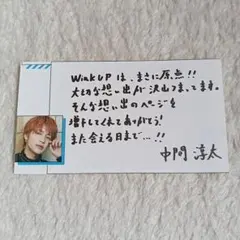 WiNK UPは、まさに原点!!
大切な想い出が沢山つまってます。
そんな想い出のページを
増やしてくれてありがとう!
また会える日まで…!!
中間 淳太